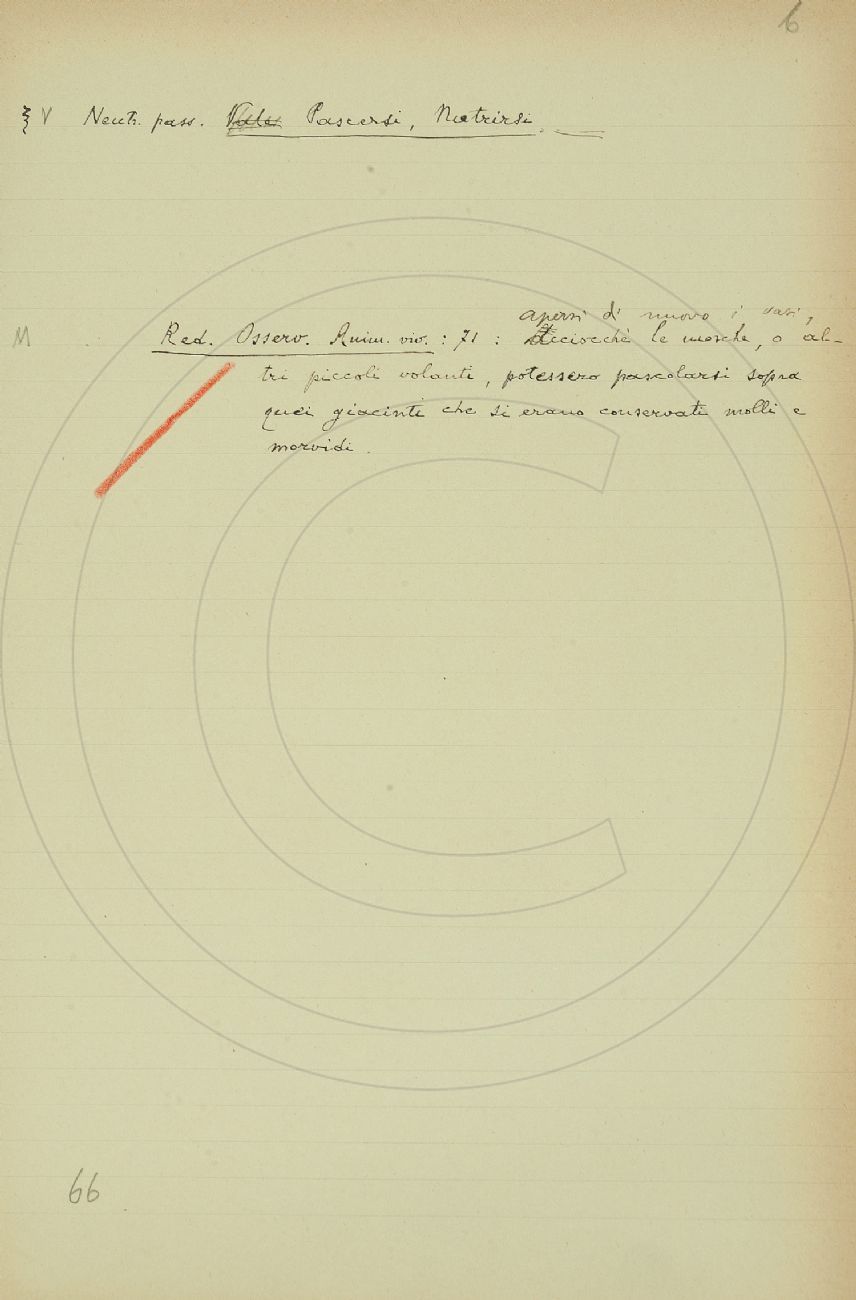 6
§ V Neutr. pass. Vale Pascersi, Nutrirsi.
apersi di nuovo i vasi,
M Red. Osserv. Anim. viv. : 71 : Acciocchè le mosche, o al-
tri piccoli volanti, potessero pascolarsi sopra
quei giacinti che si erano conservati molli e
morvidi.
66